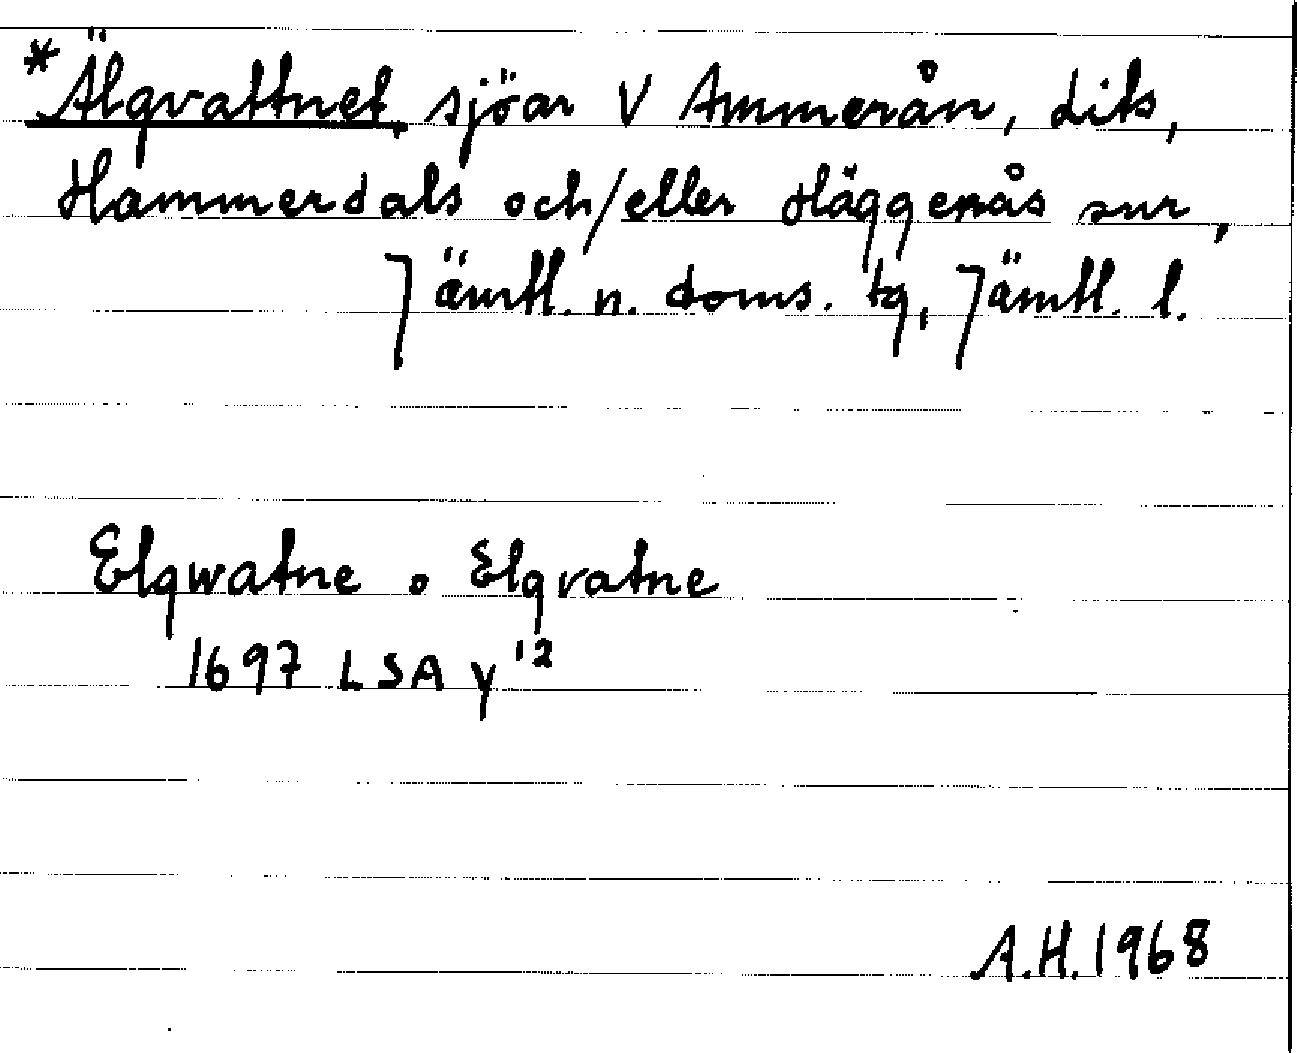 *Älgvattnet, sjöar V Ammerån, Lits,
Hammerdals och/eller Häggenås snr,
Jämtl. n. doms. tg, Jämtl. l.
Elgwatne o Elgvatne
1697 LSA Y 12
A.H. 1968